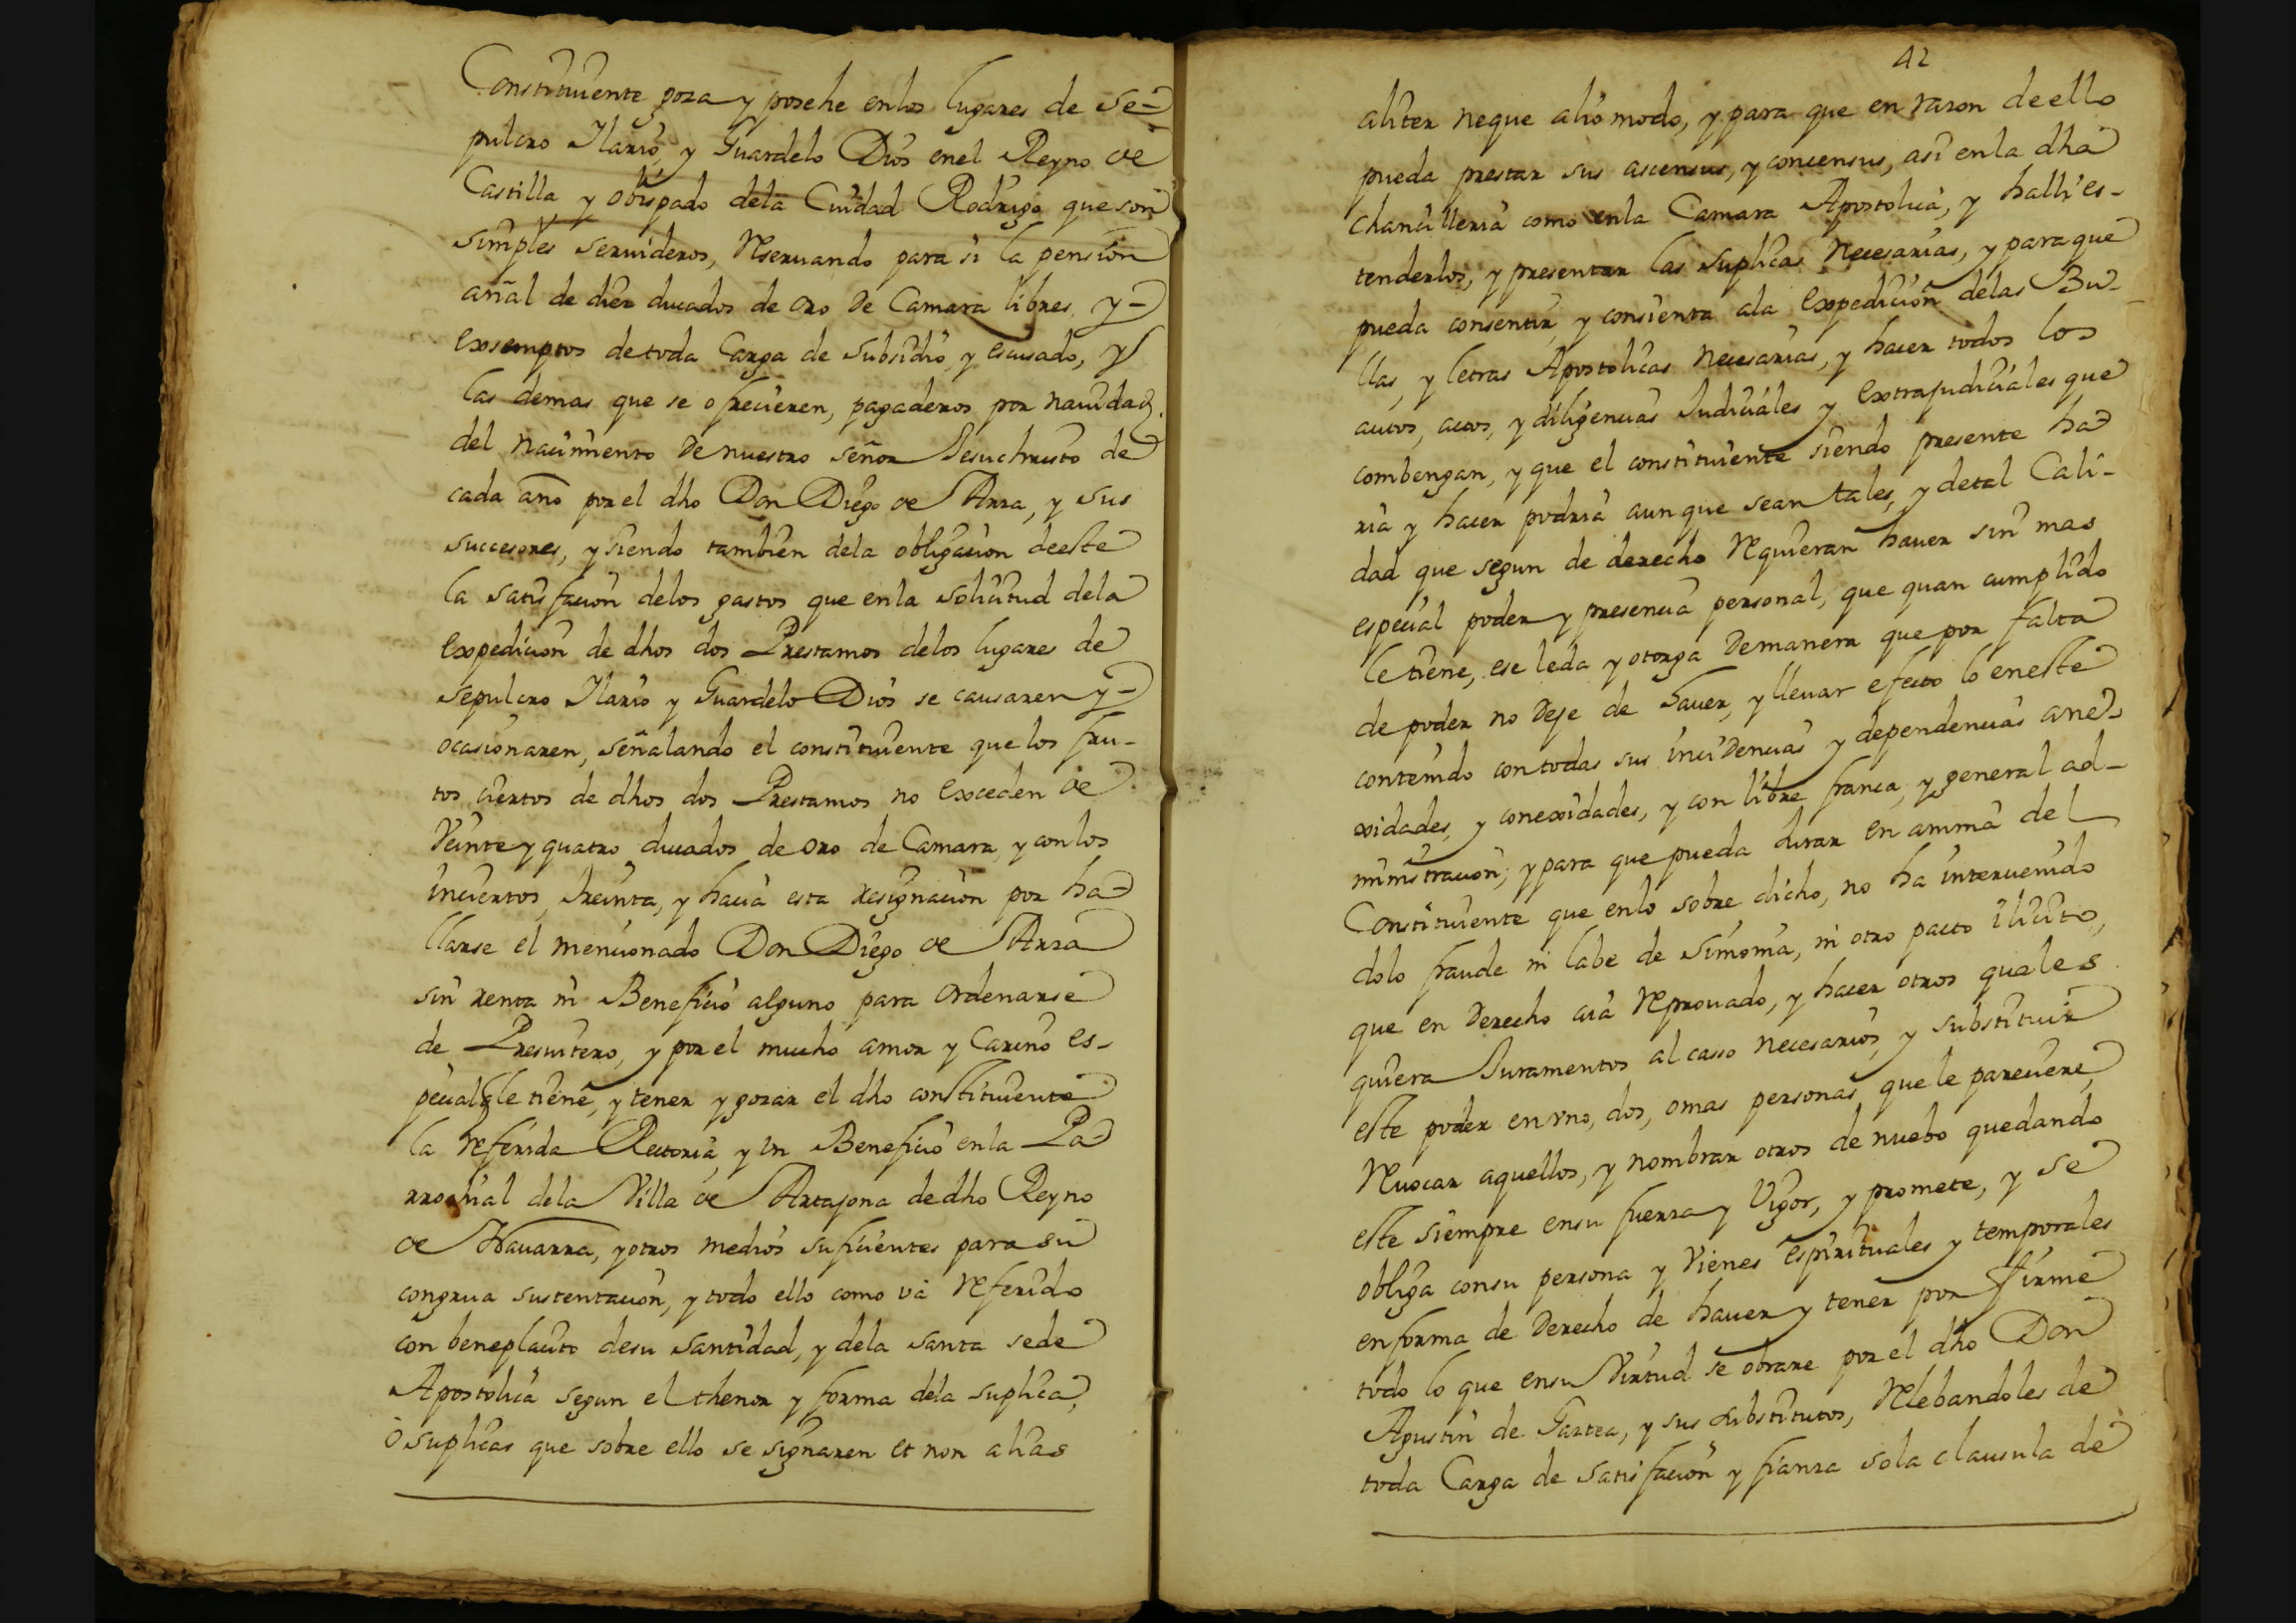 Constituiente goza y posehe enlos lugares de Se=
pulcro Ilario, y Guardelo Dios enel Reyno de
Castilla y obispado dela Ciudad Rodrigo que son
simples seruideros, Reseruando para si la pension
añal de diez ducados de oro de Camara libres, y=
exsemptos de toda Carga de Subsidio, y escusado, y
las demas que se ofrecieren, pagaderos por nauidad
del nacimiento de nuestro señor Jesuchristo de
cada año por el dho Don Diego de Arza, y sus
succesores, y siendo tambien dela obligacion deeste
la satisfacion delos gastos que enla solicitud dela
expedicion de dhos dos Prestamos delos lugares de
Sepulcro Ilario y Guardelo Dios se causaren y=
ocasionaren, señalando el constituiente que los fru-
tos ciertos de dhos dos Prestamos no exceden de
Veinte y quatro ducados de oro de Camara, y con los
inciertos, treinta, y hacia esta resignacion por ha=
llarse el mencionado Don Diego de Arza
sin renta ni Beneficio alguno para ordenarse
de Presuitero, y por el mucho amor y Cariño es-
pecial q le tiene, y tener y gozar el dho constituiente
la referida Rectoria, y un Beneficio enla Pa=
rrochial dela Villa de Artajona dedho Reyno
de Nauarra, y otros medios suficientes para su
congrua sustentacion, y todo ello como va referido
con beneplacito desu Santidad, y dela santa sede
Apostolica segun el thenor y forma dela suplica,
ò suplicas que sobre ello se signaren et non alias
42
aliter neque alio modo, y para que en razon deello
pueda prestar sus ascensus, y consensus, asi enla dha
chancilleria como enla Camara Apostolica, y halli es-
tenderlos, y presentar las suplicas necesarias, y para que
pueda consentir, y consienta ala expedicion delas Bu-
llas, y letras Apostolicas necesarias, y hacer todos los
autos, actos, y diligencias Judiciales y extrajudiciales que
combengan, y que el constituiente siendo presente ha
ria y hacer podria aunque sean tales, y detal Cali-
dad que segun de derecho Requieran hauer sin mas
especial poder y presencia personal, que quan cumplido
le tiene, ese leda y otorga demanera que por falta
de poder no deje de hauer, y lleuar efecto lo eneste
contenido con todas sus incidencias y dependencias ane=
xidades, y conexidades, y con libre franca, y general ad-
ministracion; y para que pueda Jurar en anima del
Constituiente que enlo sobre dicho, no ha interuenido
dolo fraude ni labe de simonia, ni otro pacto ilicito,
que en derecho sea Reprouado, y hacer otros quales
quiera Juramentos al caso necesarios, y substituir
este poder en vno, dos, o mas personas que le pareciere,
Reuocar aquellos, y nombrar otros de nuebo quedando
este siempre ensu fuerza y Vigor, y promete, y se
obliga consu persona y Vienes espirituales y temporales
en forma de derecho de hauer y tener por firme
todo lo que ensu Virtud se obrare por el dho Don
Agustin de Gartea, y sus substitutos, Relebandoles de
toda Carga de satisfacion y fianza sola clausula de